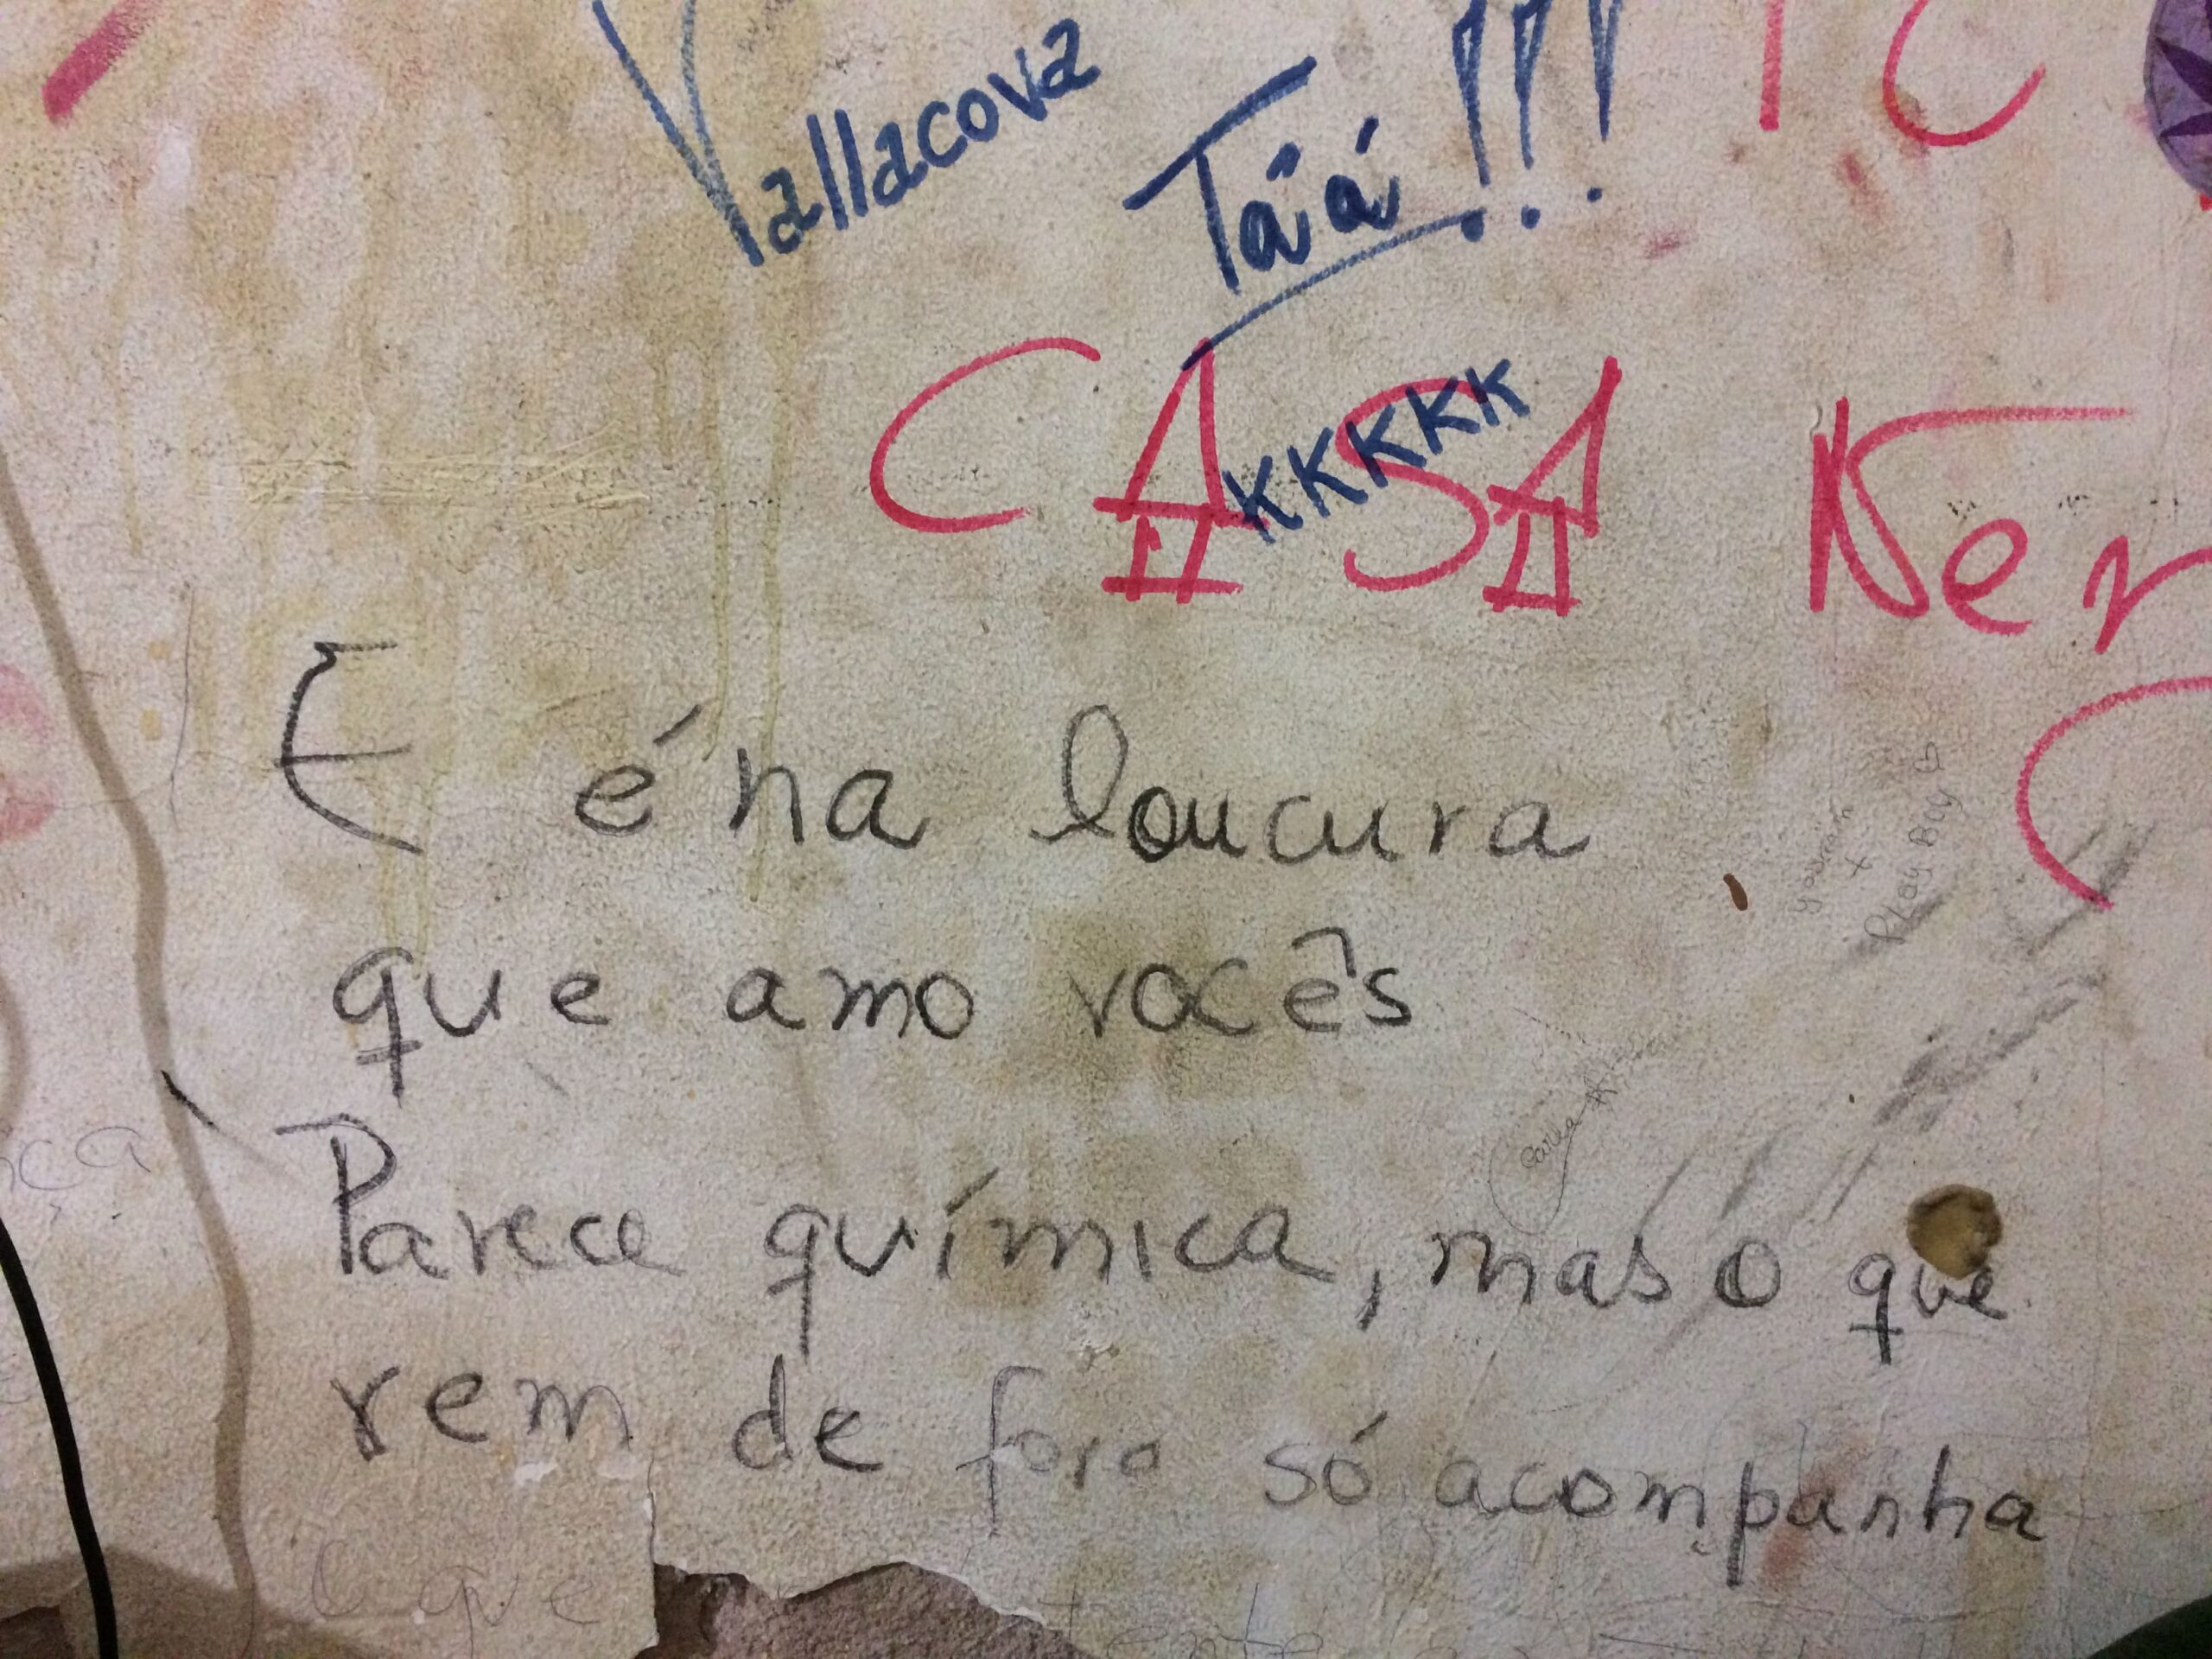 Vallacova
Tãá!!!
CASA Ner
KKKKKK
E é na loucura
que amo vocês
Parece química, mas o que
vem de fora só acompanha
Play Boy
o que